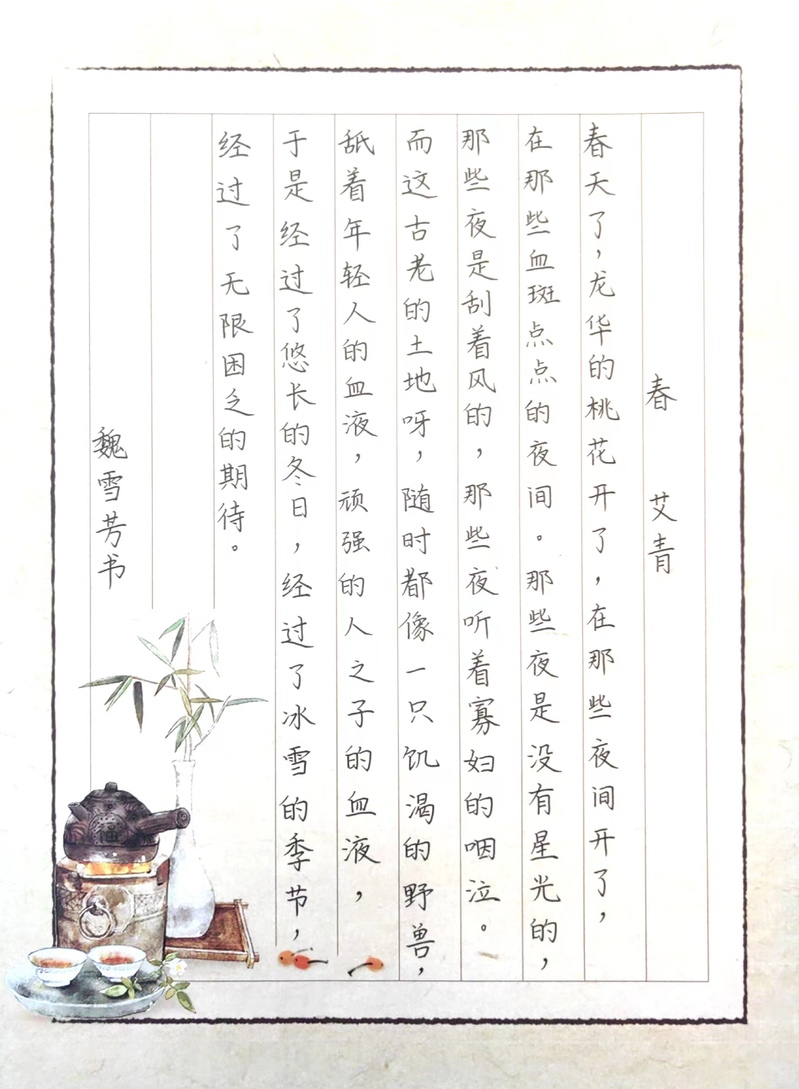 春 艾青
春天了，龙华的桃花开了，在那些夜间开了，
在那些血斑点点的夜间。那些夜是没有星光的，
那些夜是刮着风的，那些夜听着寡妇的咽泣。
而这古老的土地呀，随时都像一只饥渴的野兽，
舐着年轻人的血液，顽强的人之子的血液，
于是经过了悠长的冬日，经过了冰雪的季节，
经过了无限困乏的期待。
魏雪芳书
福